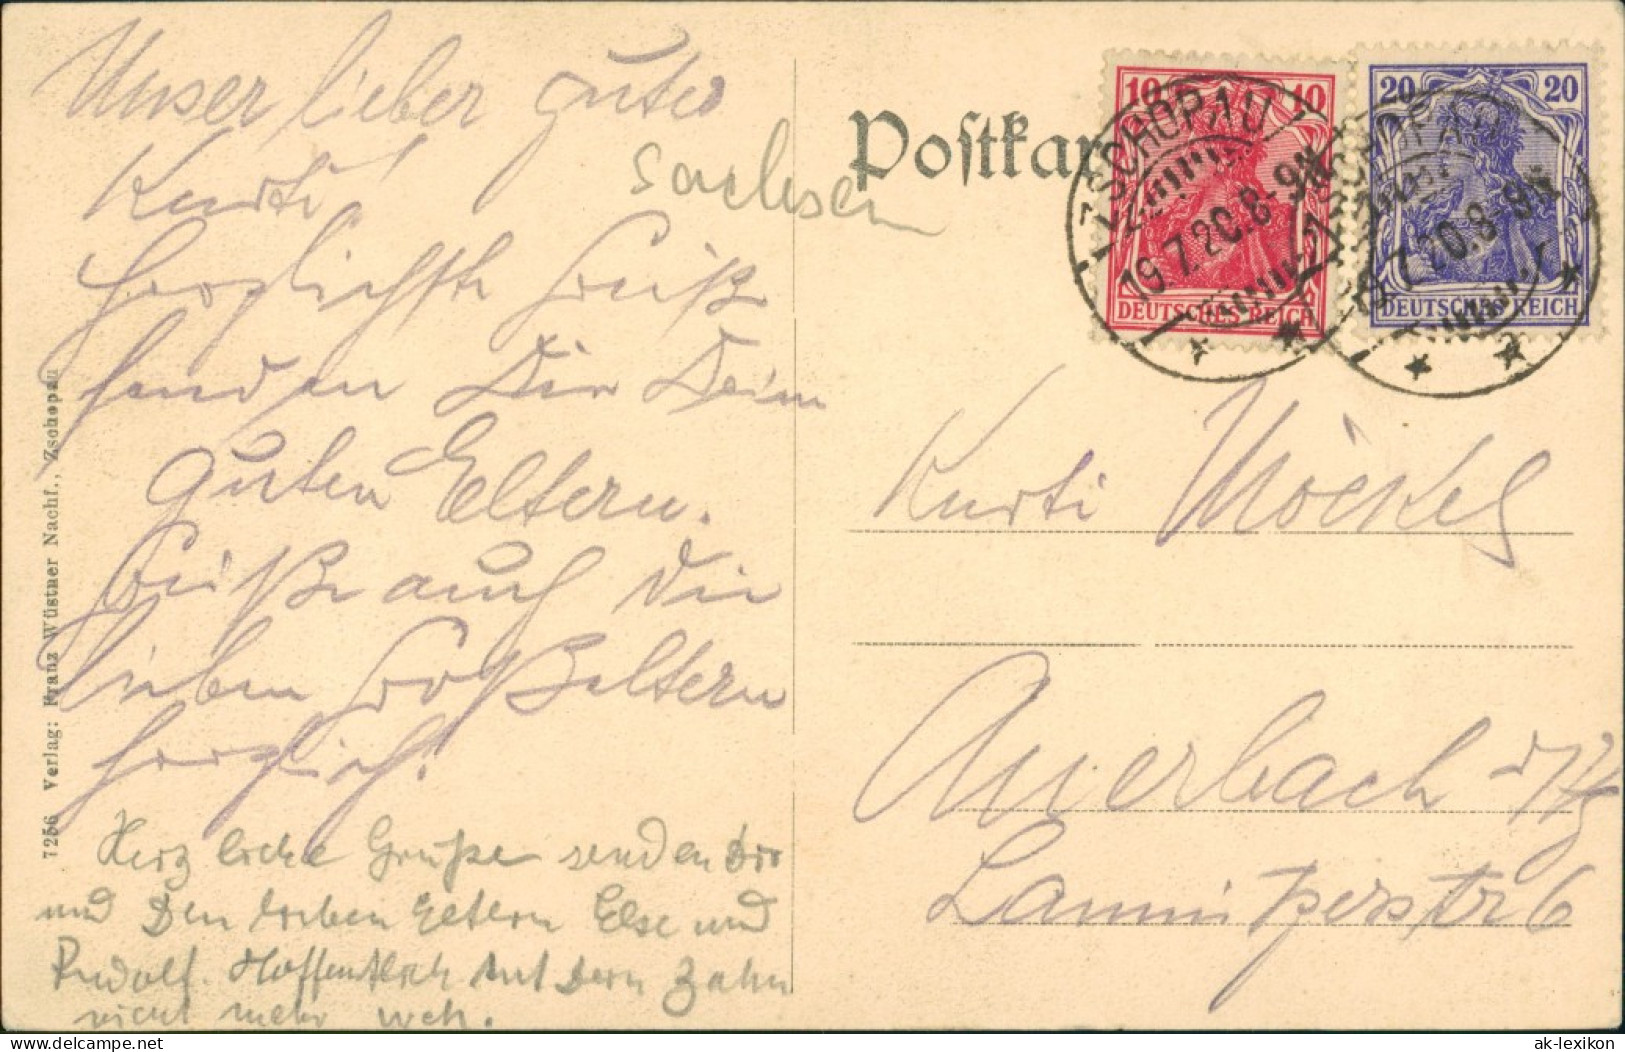 Unser lieber guter
Kurti!
Herzlichste Grüße
senden Dir Deine
guten Eltern.
Grüße auch die
lieben Großeltern
herzlich!
Herzliche Grüße senden Dir
und Den lieben Eltern Else und
Rudolf. Hoffentlich tut Dein Zahn
nicht mehr weh.
7256 Verlag: Franz Wüstner Nachf., Zschopau
Postkar
Sachsen
10 10
DEUTSCHES REICH
20 20
DEUTSCHES REICH
ZSCHOPAU
19.7.20.8-9N
ZSCHOPAU
19.7.20.8-9N
Kurti Möckel
Auerbach
6
ak-lexikon
delcampe.net